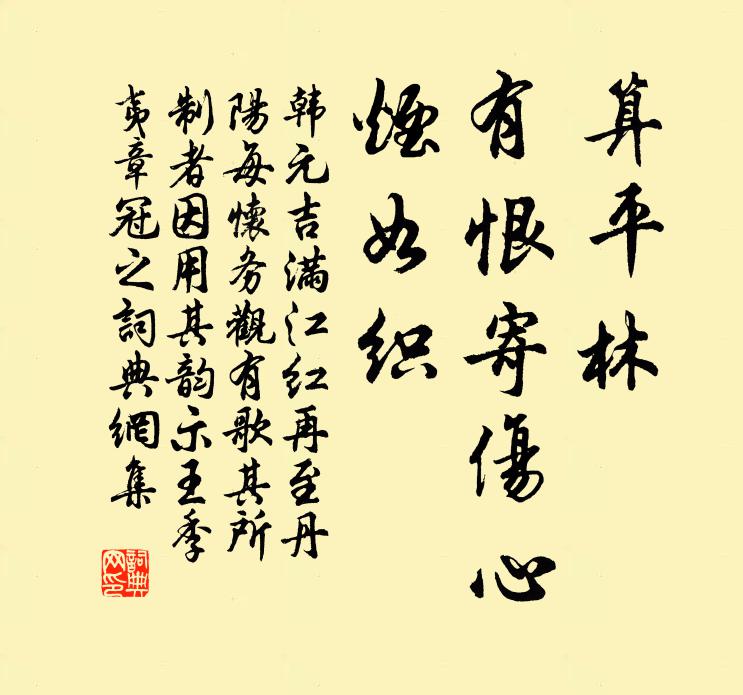 算平林
有恨寄傷心
煙如织
韩元吉满江红再至丹
陽每懷务觀有歌其所
制者因用其韵示王季
夷章冠之詞典網集
詞典网印